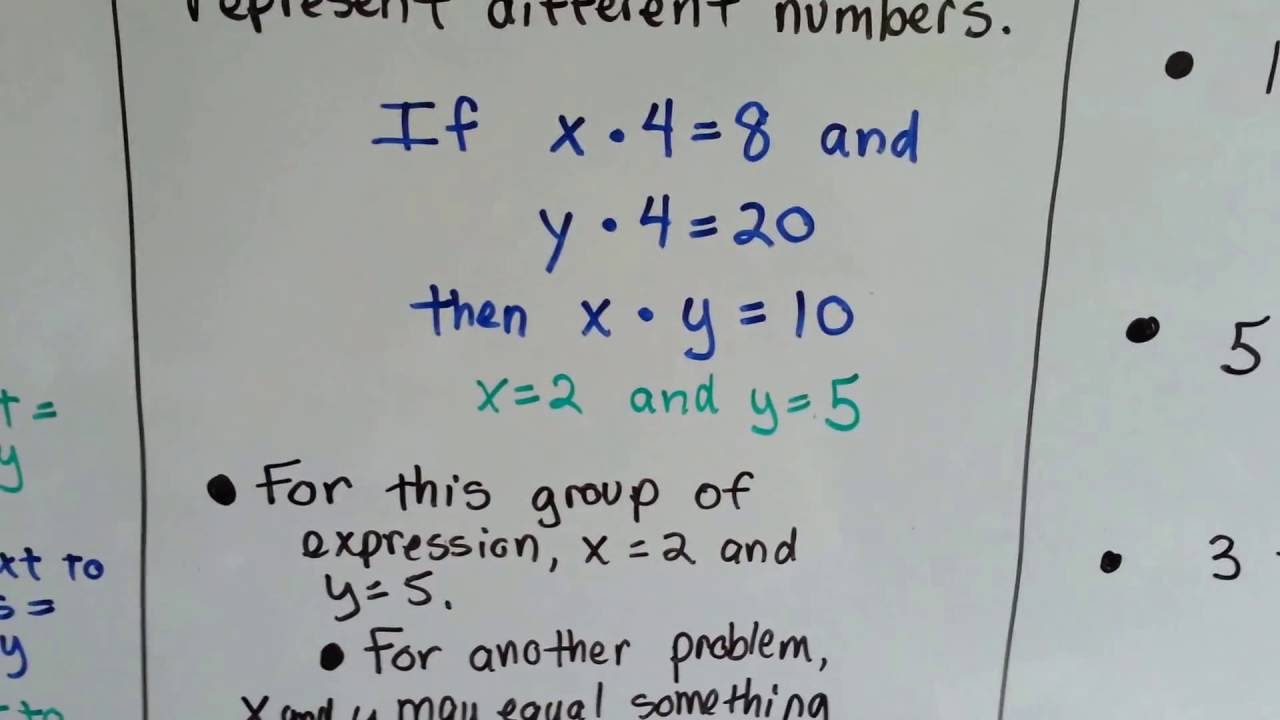 represent different numbers.
If x · 4 = 8 and
y · 4 = 20
then x · y = 10
x = 2 and y = 5
• For this group of
expression, x = 2 and
y = 5.
• For another problem,
x and y may equal something
=
y
to
=
y
to
•
• 5
• 3